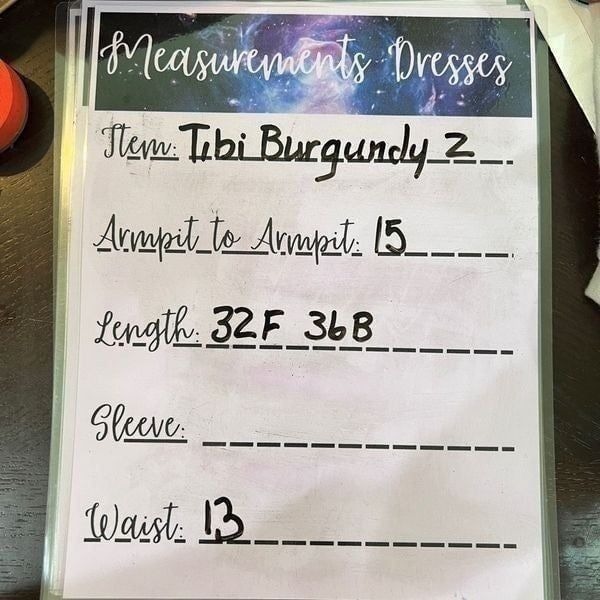 Measurements Dresses
Item: Tibi Burgundy 2
Armpit to Armpit: 15
Length: 32F 36B
Sleeve:
Waist: 13